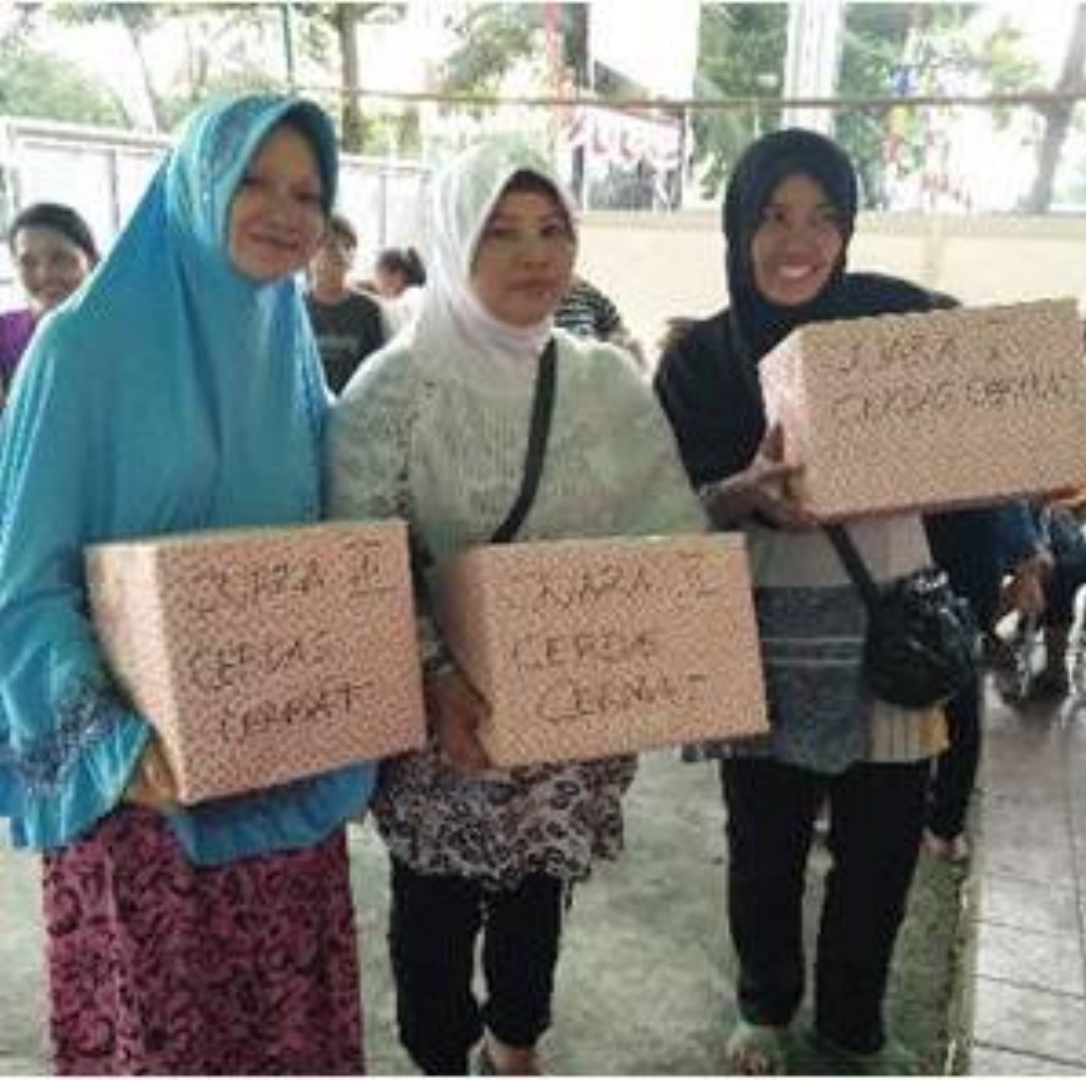 JUARA II
CERDAS
CERMAT
JUARA II
CERDAS
CERMAT
JUARA II
CERDAS CERMAT